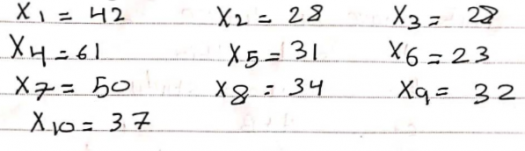 X1 = 42 X2 = 28 X3 = 28
X4 = 61 X5 = 31 X6 = 23
X7 = 50 X8 = 34 X9 = 32
X10 = 37